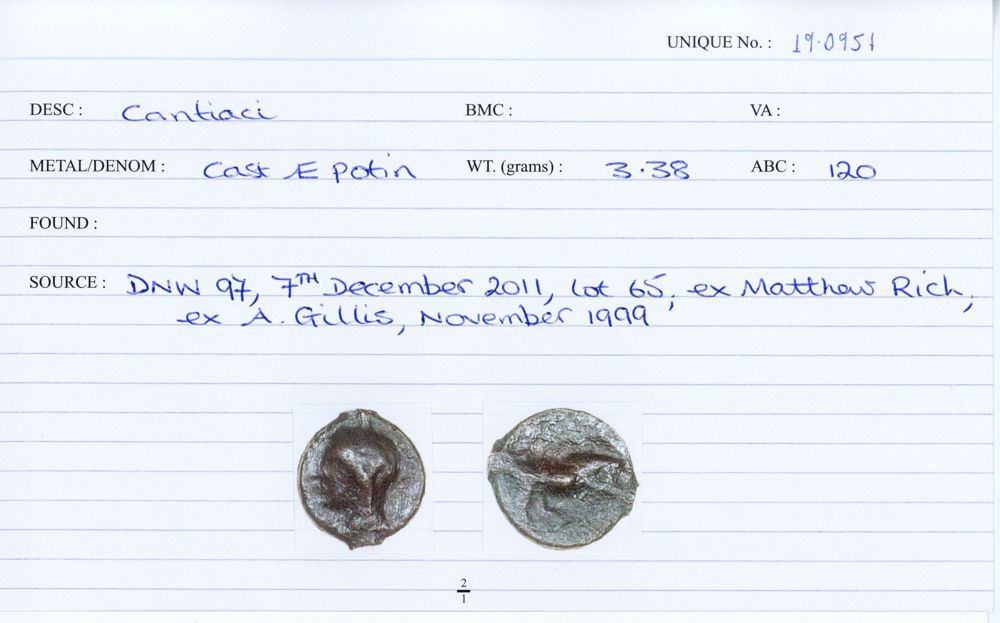 UNIQUE No. : 19.0951
DESC : Cantiaci BMC : VA :
METAL/DENOM : Cast Æ Potin WT. (grams) : 3.38 ABC : 120
FOUND :
SOURCE : DNW 97, 7TH December 2011, lot 65, ex Matthew Rich,
ex A. Gillis, November 1999
2
1